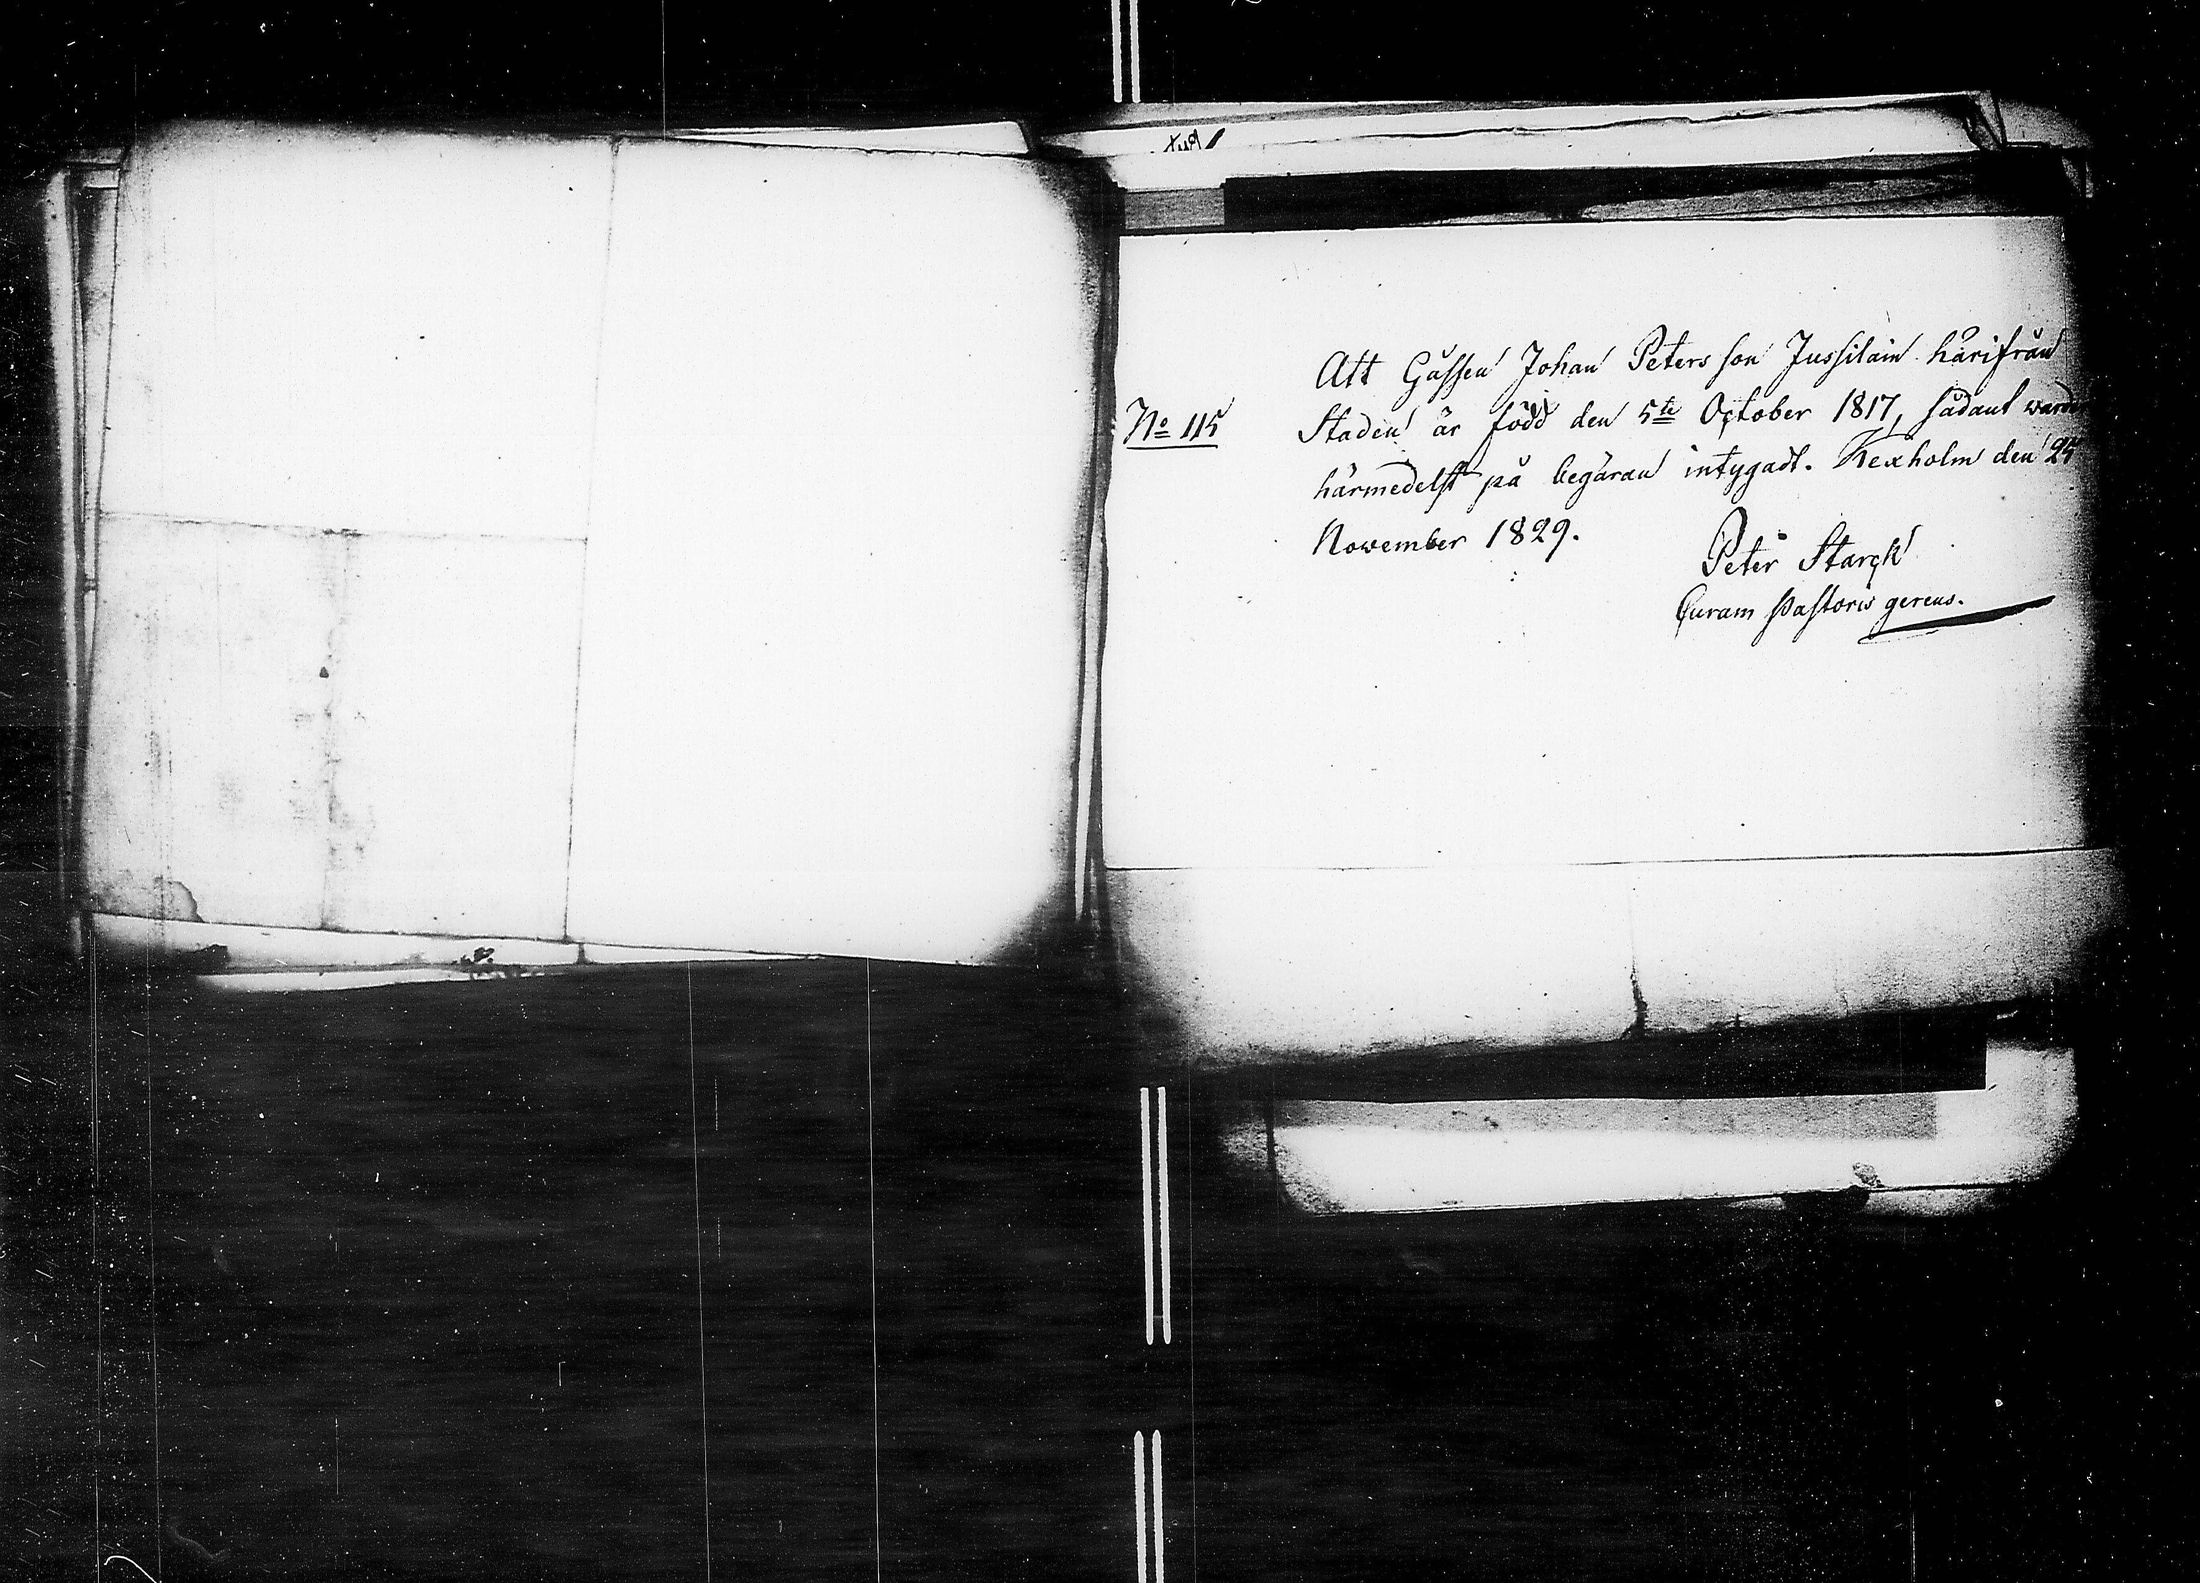 Att Gåssen Johan Petersson Jussilain härifrån
No 115
Staden är född den 5te October 1817, sådant warde
härmedelst på begäran intygadt. Kexholm den 25
November 1829.
Peter Starck
Curam Pastoris gerens.